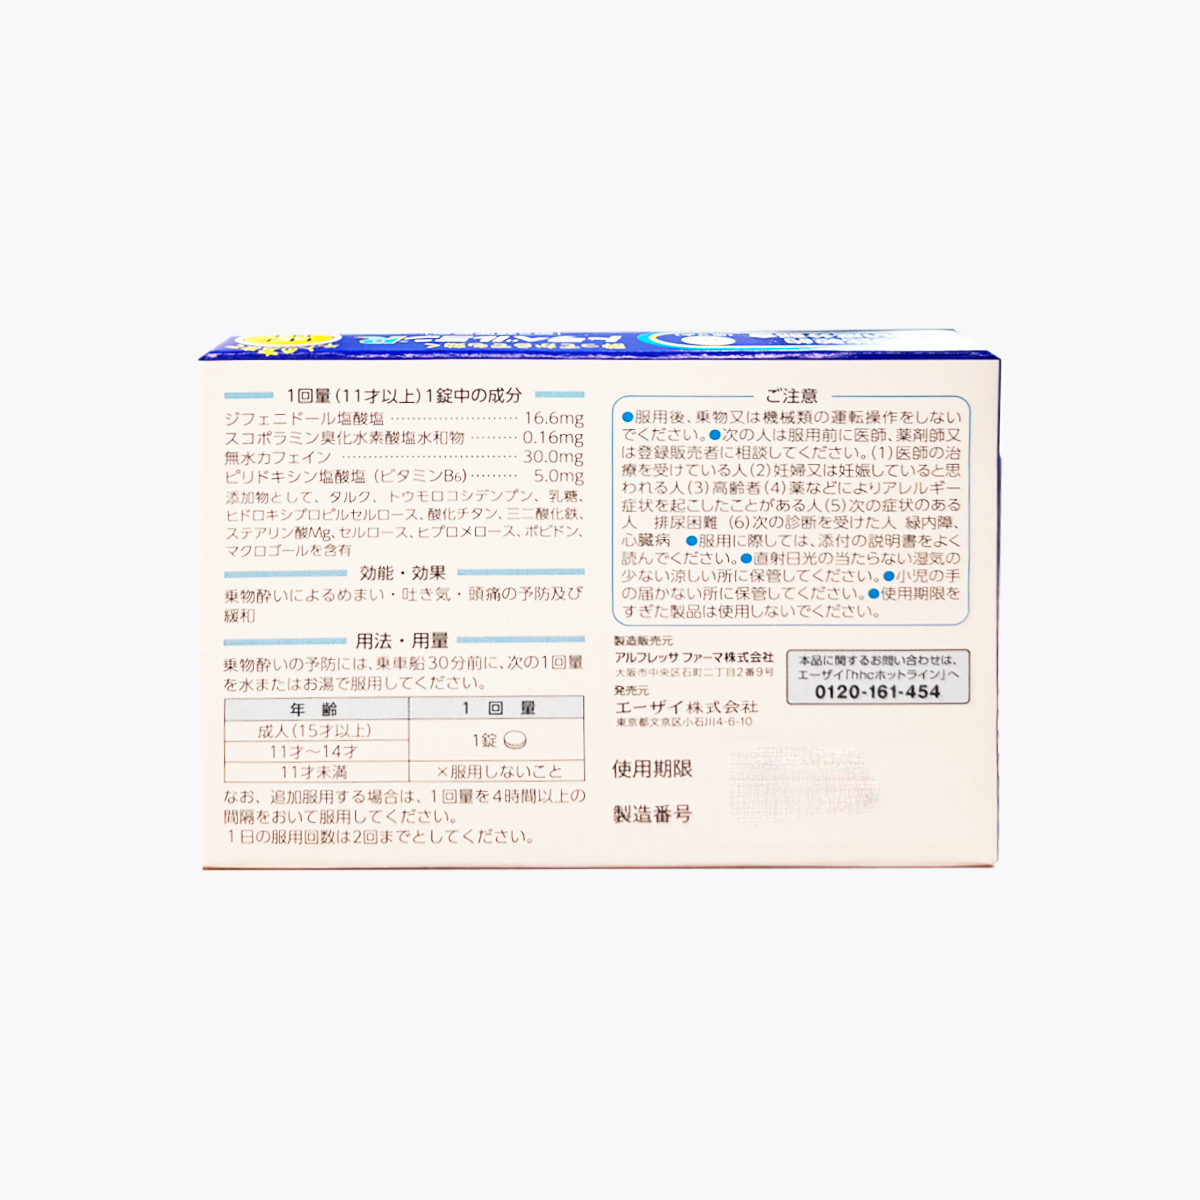 トラベルミンR
1回量(11才以上)1錠中の成分
ジフェニドール塩酸塩 …………………… 16.6mg
スコポラミン臭化水素酸塩水和物 ……… 0.16mg
無水カフェイン …………………………… 30.0mg
ピリドキシン塩酸塩(ビタミンB6)……… 5.0mg
添加物として、タルク、トウモロコシデンプン、乳糖、
ヒドロキシプロピルセルロース、酸化チタン、三二酸化鉄、
ステアリン酸Mg、セルロース、ヒプロメロース、ポビドン、
マクロゴールを含有
効能・効果
乗物酔いによるめまい・吐き気・頭痛の予防及び
緩和
用法・用量
乗物酔いの予防には、乗車船30分前に、次の1回量
を水またはお湯で服用してください。
年 齢 1 回 量
成人(15才以上)
1錠
11才~14才
11才未満 ×服用しないこと
なお、追加服用する場合は、1回量を4時間以上の
間隔をおいて服用してください。
1日の服用回数は2回までとしてください。
ご注意
●服用後、乗物又は機械類の運転操作をしない
でください。●次の人は服用前に医師、薬剤師又
は登録販売者に相談してください。(1)医師の治
療を受けている人(2)妊婦又は妊娠していると思
われる人(3)高齢者(4)薬などによりアレルギー
症状を起こしたことがある人(5)次の症状のある
人 排尿困難 (6)次の診断を受けた人 緑内障、
心臓病 ●服用に際しては、添付の説明書をよく
読んでください。●直射日光の当たらない湿気の
少ない涼しい所に保管してください。●小児の手
の届かない所に保管してください。●使用期限を
すぎた製品は使用しないでください。
製造販売元
アルフレッサ ファーマ株式会社
大阪市中央区石町二丁目2番9号
発売元
エーザイ株式会社
東京都文京区小石川4-6-10
本品に関するお問い合わせは、
エーザイ「hhcホットライン」へ
0120-161-454
使用期限
製造番号